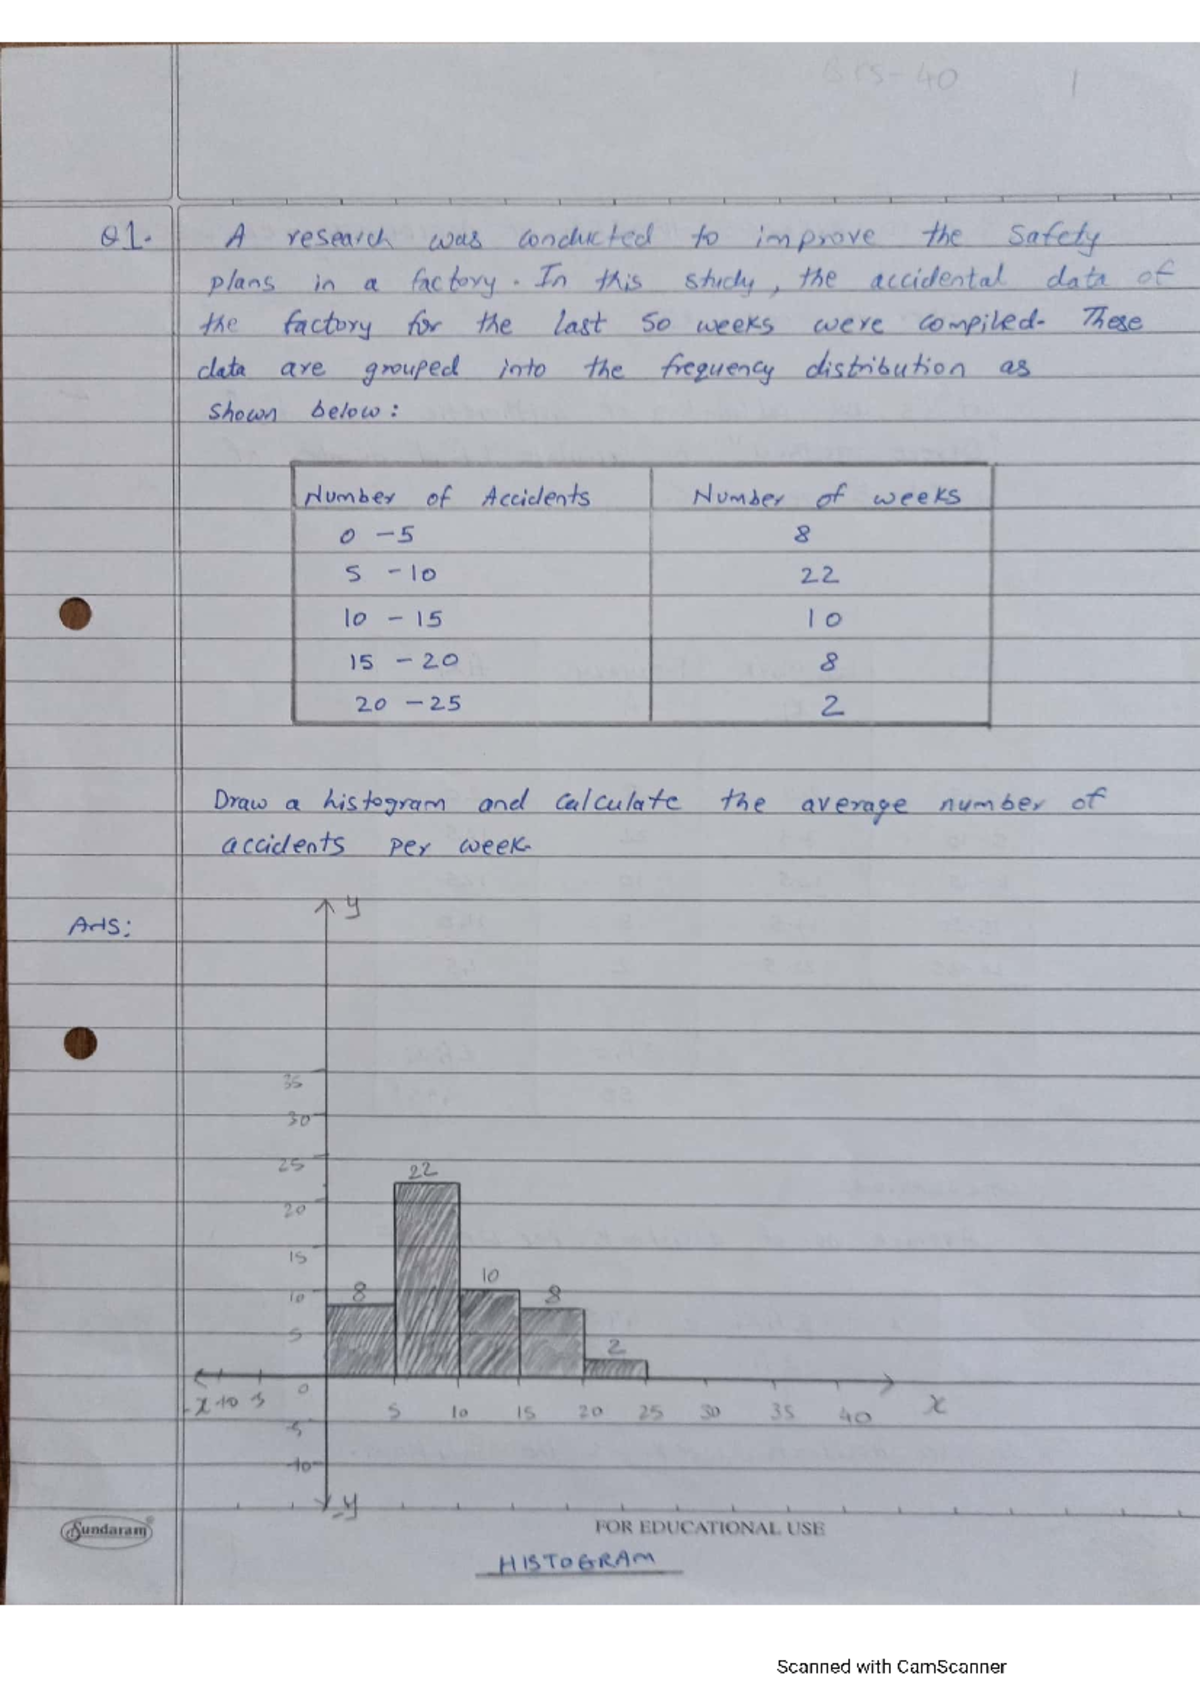 BCS-40 1
Q1. A research was conducted to improve the safety
plans in a factory. In this study, the accidental data of
the factory for the last 50 weeks were compiled. These
data are grouped into the frequency distribution as
shown below:
Number of Accidents Number of weeks
0 - 5 8
5 - 10 22
10 - 15 10
15 - 20 8
20 - 25 2
Draw a histogram and calculate the average number of
accidents per week.
Ans:
y
35
30
25
22
20
15
10
10
8
8
5
2
0
-x -10 5 5 10 15 20 25 30 35 40 x
-5
-10
-y
Sundaram FOR EDUCATIONAL USE
HISTOGRAM
Scanned with CamScanner